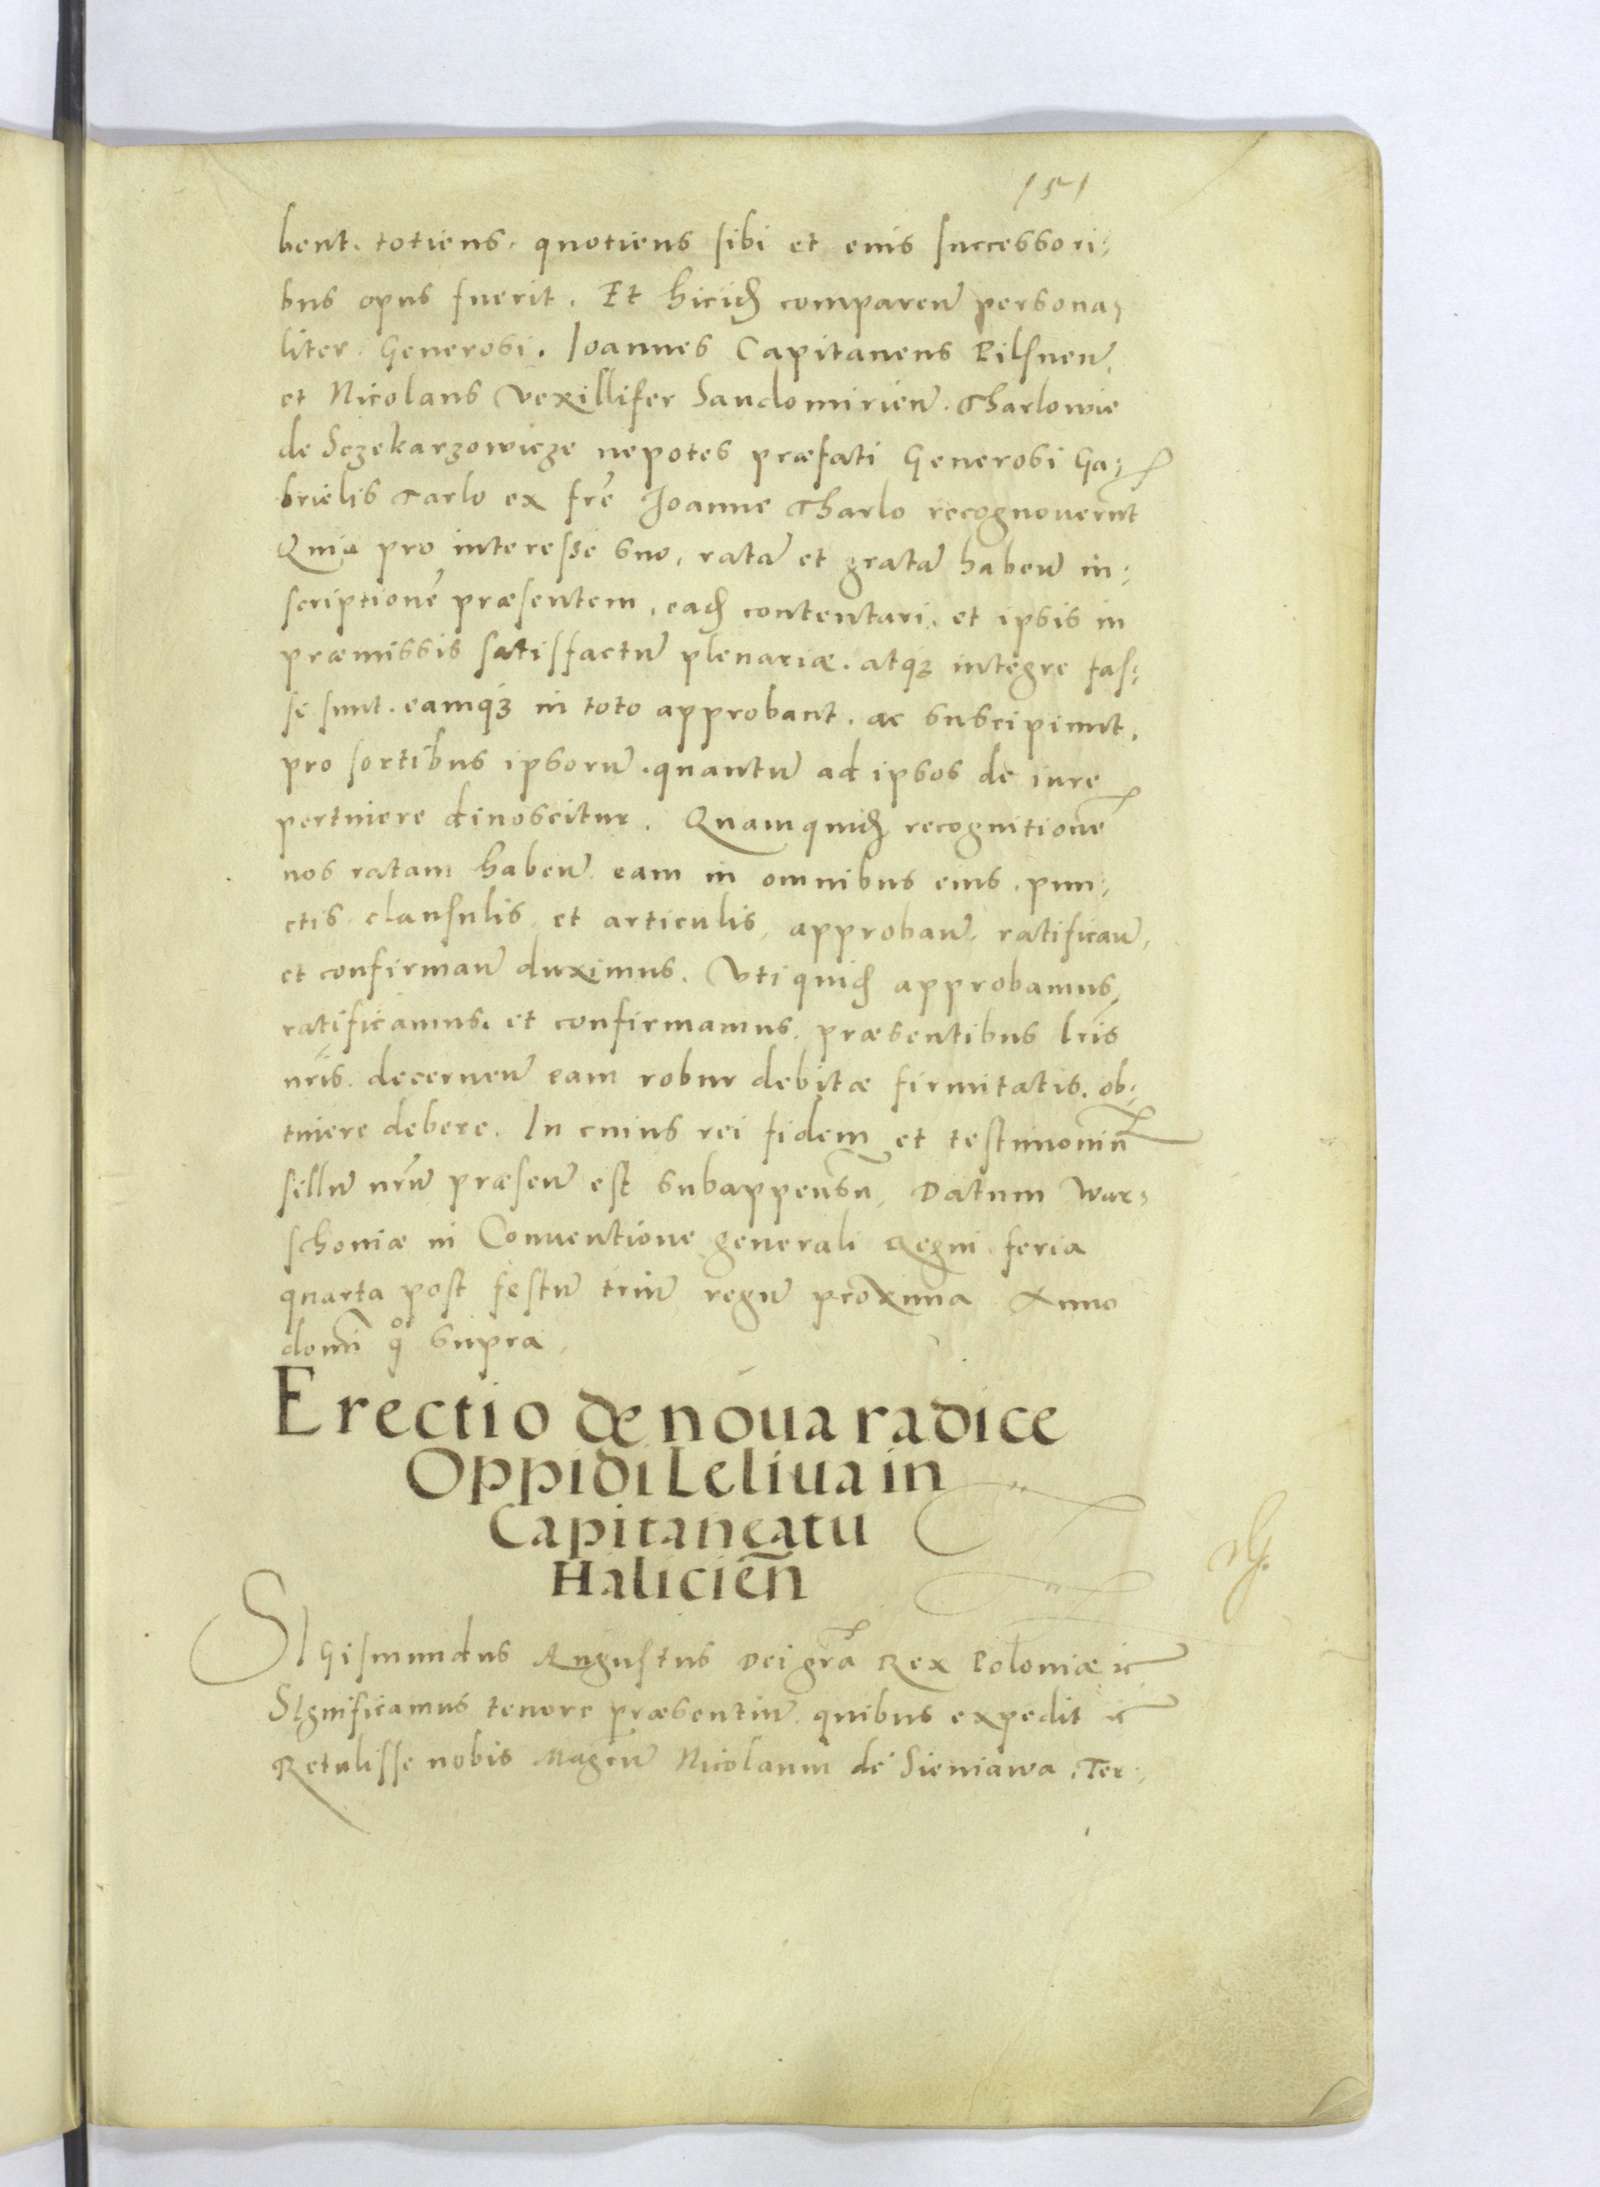 151
bent. totiens. quotiens sibi et eius successori:
bus opus fuerit. Et hiciid comparen̄ persona:
liter Generosi. Ioannes Capitaneus Pilsnen̄.
et Nicolaus Vexillifer Sandomirien̄. Tharlowie
de Sczekarzowicze nepotes præfati Generosi Ga:
brielis Tarlo ex fr̄e Joanne Tharlo recognouerūt
Quia pro interesse suo, ratā et gratā haben̄ in:
scriptionē præsentem, ead contentari. et ipsis in
præmissis satisfactū plenariæ. atq₃ integre fas:
se sunt. eamq₃ in toto approbant. ac suscipiunt.
pro sortibus ipsorū. quantū ad ipsos de iure
pertinere dinoscitur. Quamquid recognitionē
nos ratam haben̄ eam in omnibus eius. pun:
ctis clausulis et articulis, approban̄. ratifican̄.
et confirman̄ duximus. Vti quid approbamus,
ratificamus. et confirmamus, præsentibus lr̄is
nr̄is. decernen̄ eam robur debitæ firmitatis. ob:
tinere debere. In cuius rei fidem et testimoniū
sillū nr̄ū præsen̄ est subappensū. Datum War:
schouiæ in Conuentione generali Regni feria
quarta post festū triū regū proxima Anno
domī qͦ supra.
Erectio de noua radice
Oppidi Leliua in
Capitaneatu
Halicien̄
SIgismundus Augustus Dei gr̄a Rex Poloniæ ꝛc
SIgnificamus tenore præsentiū. quibus expedit ꝛc
Retulisse nobis Magcū Nicolaum de Sieniawa. Ter: